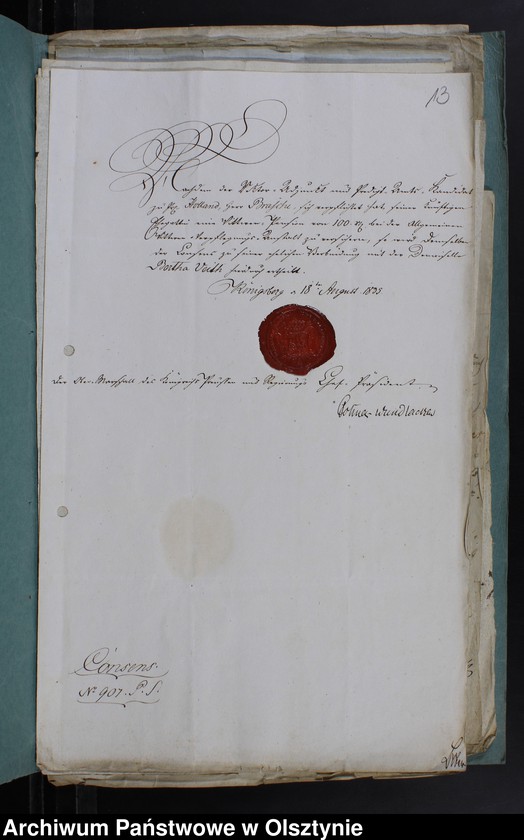 13
Nachdem der Rektor-Adjunkt und Predigt-Amts-Kandidat
zu Pr. Holland, Herr Brasche, sich verpflichtet hat seiner künftigen
Ehegattin eine Wittwen-Pension von 100 bei der Allgemeinen
Wittwen-Verpflegungs-Anstalt zu versichern, so wird demselben
der Consens zu seiner ehelichen Verbindung mit der Demoiselle
Bertha Veith hiedurch ertheilt.
Königsberg d. 18ten August 1835
Der Ober-Marschall des Königreichs Preußen und Regierungs Chef-Präsident
Dohna-Wundlacken
Consens.
No. 907. P. S.
Archiwum Państwowe w Olsztynie